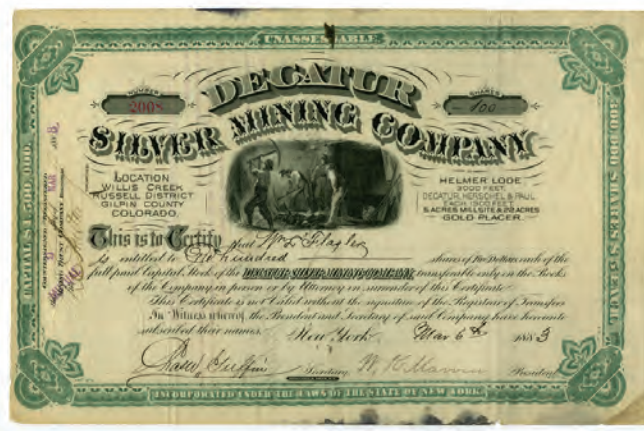 UNASSESSABLE
NUMBER
2008
DECATUR
SHARES
100
SILVER MINING COMPANY
LOCATION
WILLIS CREEK
RUSSELL DISTRICT
GILPIN COUNTY
COLORADO.
HELMER LODE
3000 FEET,
DECATUR, HERSCHEL & PAUL
EACH 1500 FEET
5 ACRES MILLSITE & 20 ACRES
GOLD PLACER.
This is to Certify that Wm L. Flagler
is entitled to One hundred shares of Ten Dollars each of the
full paid Capital Stock of the DECATUR SILVER MINING COMPANY, transferable only in the Books
of the Company in person or by Attorney in surrender of this Certificate.
This Certificate is not Valid without the signature of the Registrar of Transfers
In Witness whereof, the President and Secretary of said Company have hereunto
subscribed their names. New York Mar 6th 1883
Secretary W. K. Marvin President
INCORPORATED UNDER THE LAWS OF THE STATE OF NEW YORK.
CAPITAL $1,500,000.
SHARES